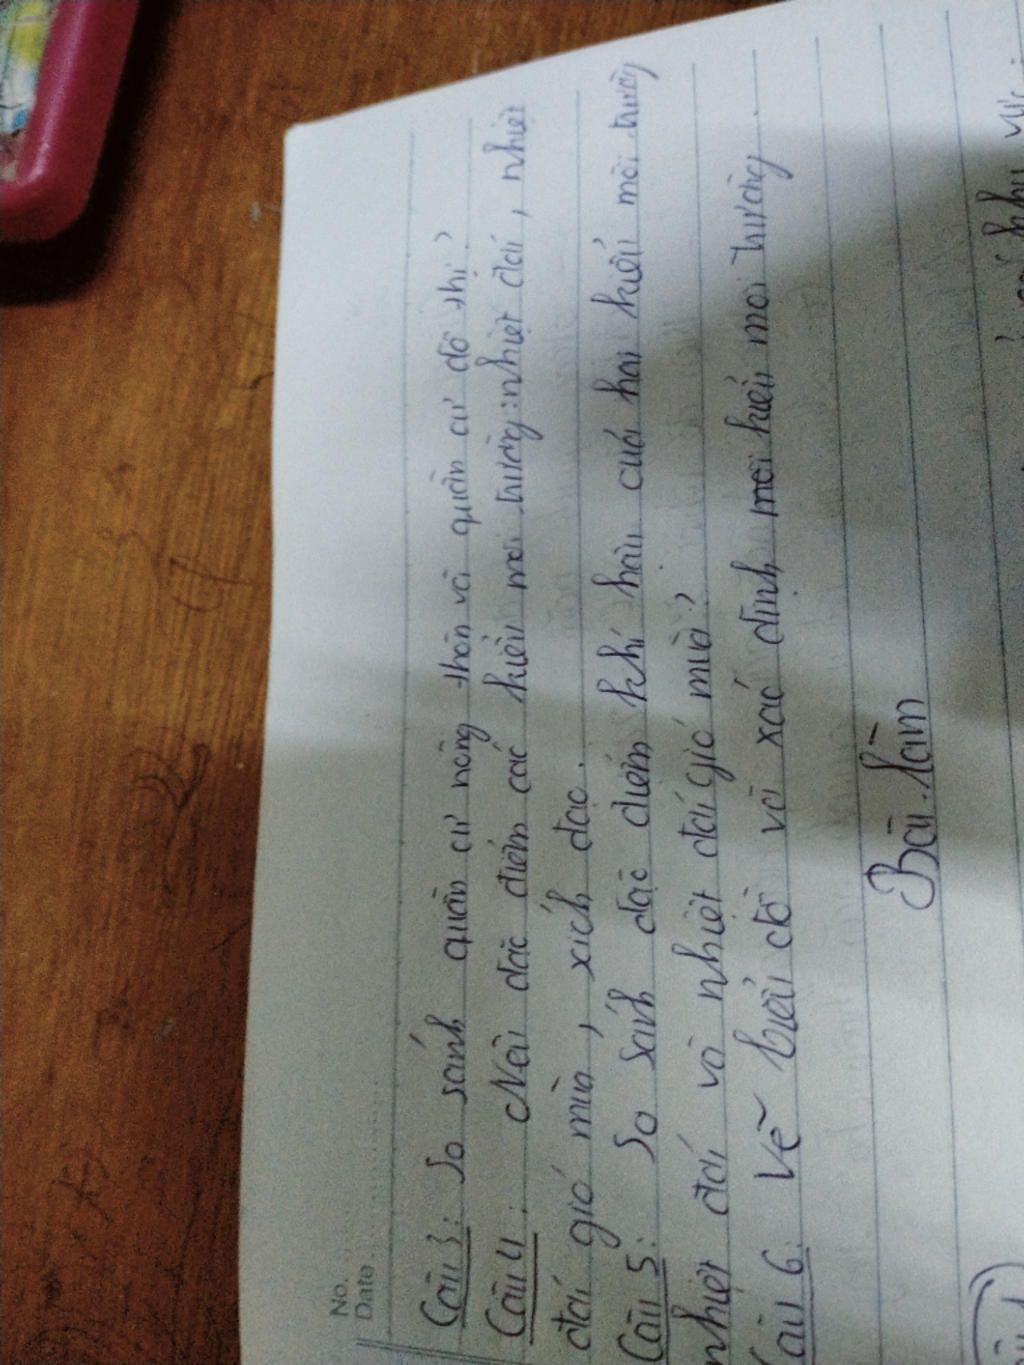 No.
Date
Câu 3: So sánh quần cư nông thôn và quần cư đô thị?
Câu 4: Nêu đặc điểm các kiểu môi trường: nhiệt đới, nhiệt
đới gió mùa, xích đạo.
Câu 5: So sánh đặc điểm khí hậu của hai kiểu môi trường
nhiệt đới và nhiệt đới gió mùa?
Câu 6: Vẽ biểu đồ và xác định mỗi kiểu môi trường.
Bài làm
khu vực